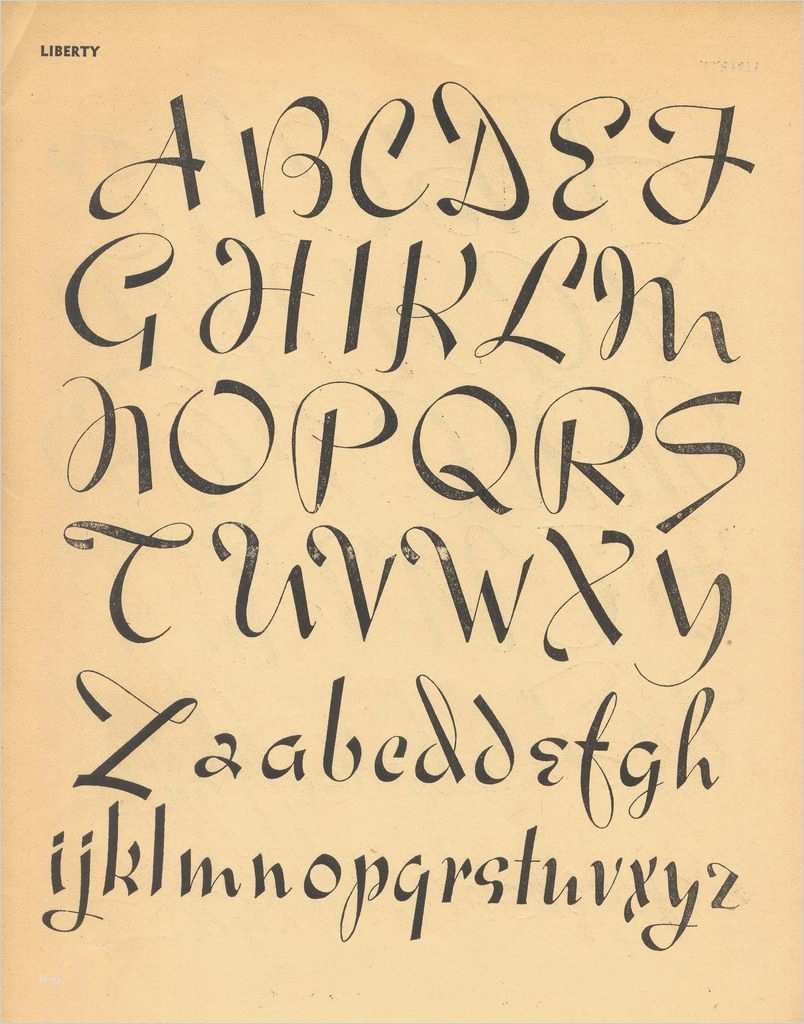 LIBERTY
A B C D E F
G H I K L M
N O P Q R S
T U V W X Y
Z a a b c d d e f g h
i j k l m n o p q r s t u v x y z